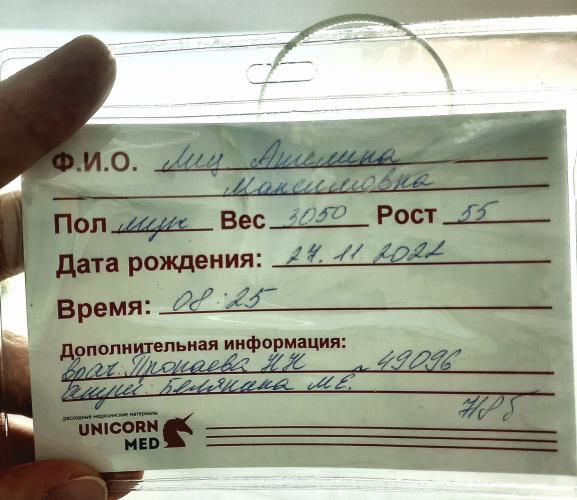 Ф.И.О. Лиц. Ангелина
Максимовна
Пол Вес 3050 Рост 55
Дата рождения: 27.11.2022
Время: 08:25
Дополнительная информация:
врач: Н.Н. 49096
Белянина М.Е.
расходные медицинские материалы
UNICORN
MED